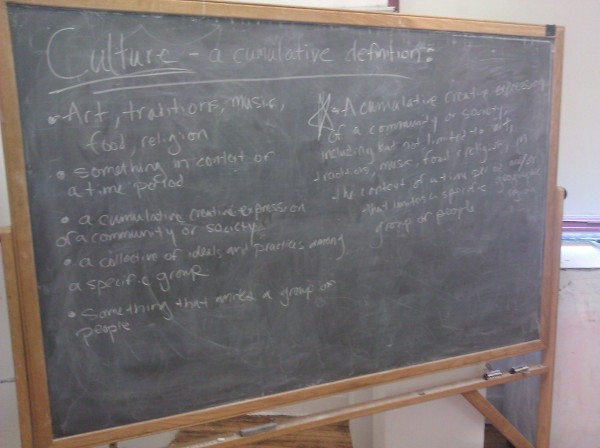 Culture - a cumulative definition:
• Art, traditions, music,
food, religion
• something in context or
a time period
• a cumulative creative expression
of a community or society
• a collective of ideals and practices among
a specific group
• Something that unites a group of
people
A cumulative creative expression
of a community or society,
including but not limited to art,
traditions, music, food & religion, in
the context of a time period and/or
that unites a specific geographic
group of people region